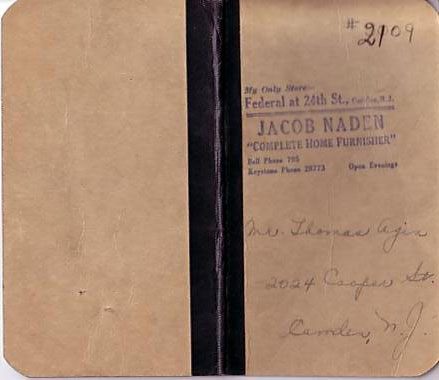 # 2109
My Only Store—
Federal at 24th St., Camden, N.J.
JACOB NADEN
"COMPLETE HOME FURNISHER"
Bell Phone 795
Keystone Phone 28773 Open Evenings
Mr. Thomas Agin
2024 Cooper St.
Camden, N.J.